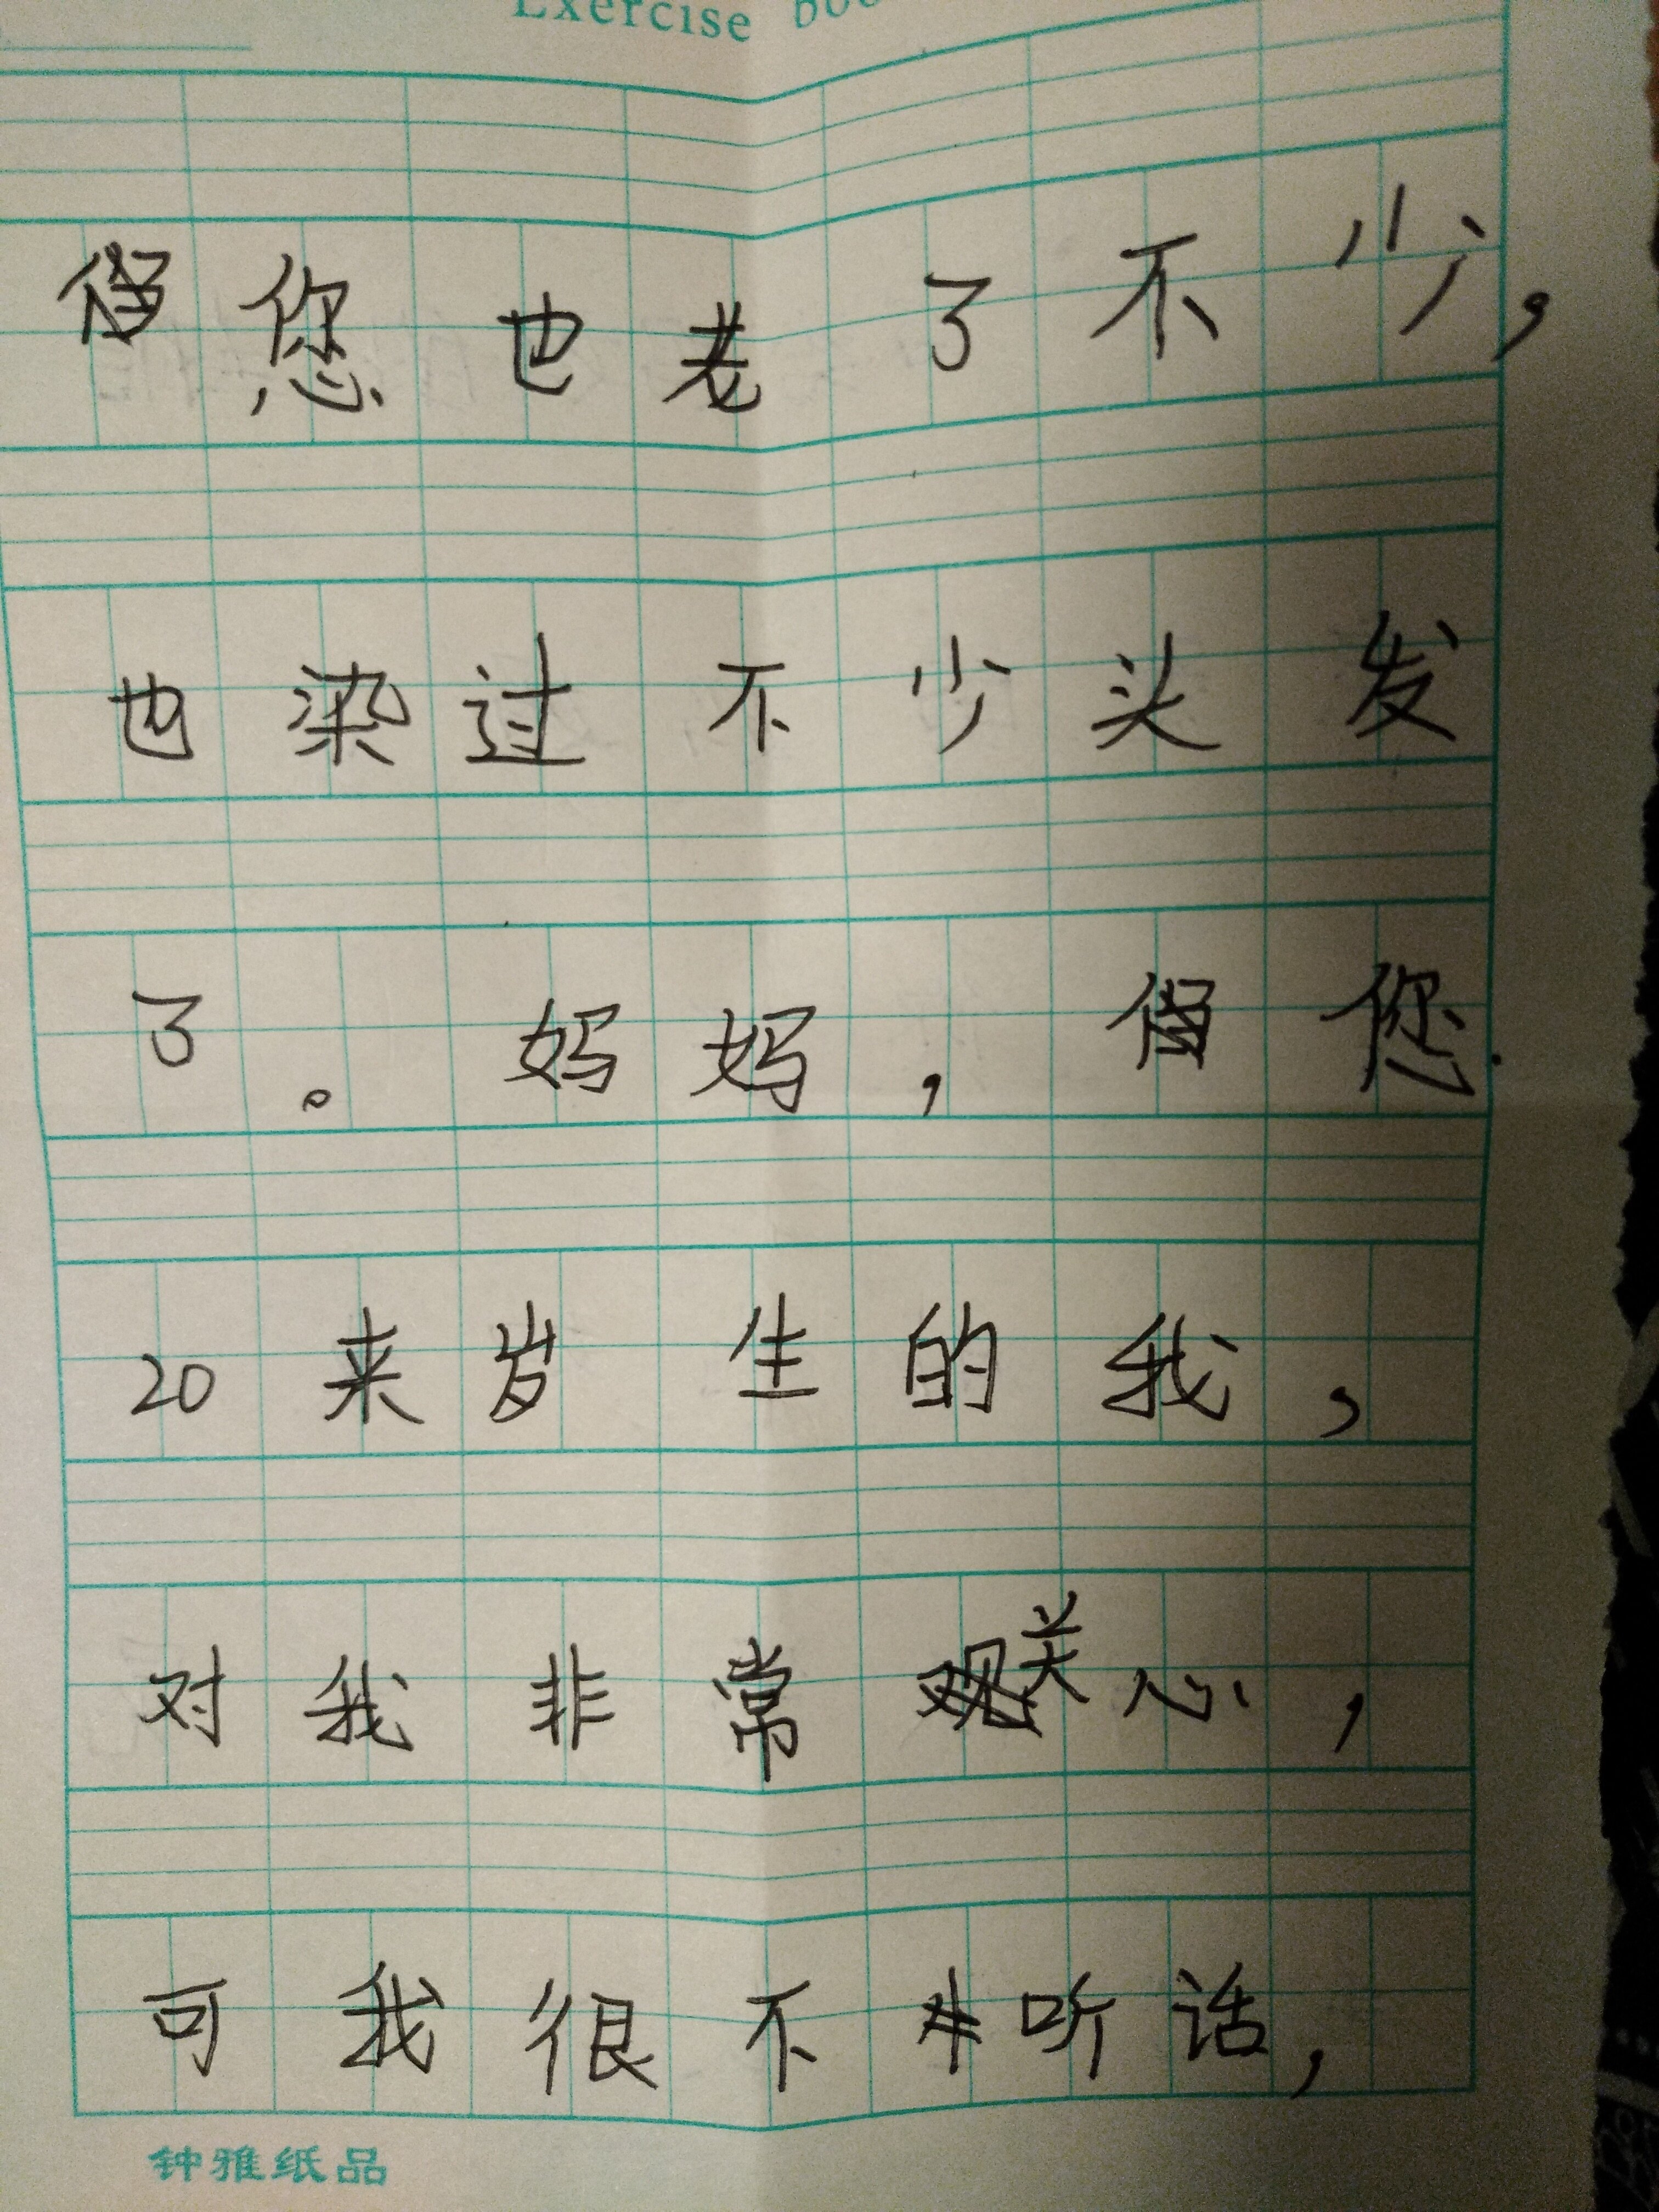 Exercise boo
您也老了不少，
也染过不少头发
了。妈妈，但您
20来岁生的我，
对我非常关心，
可我很不听话，
钟雅纸品